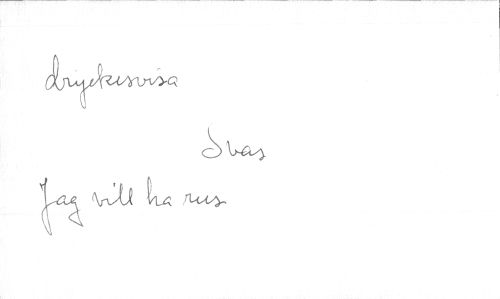 dryckesvisa
Svas
Jag vill ha rus